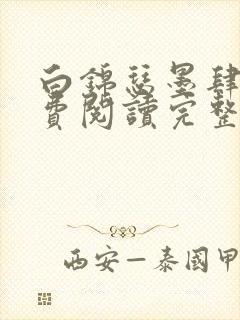 白錦瑟墨肆
費閱讀完整
西安—泰國甲